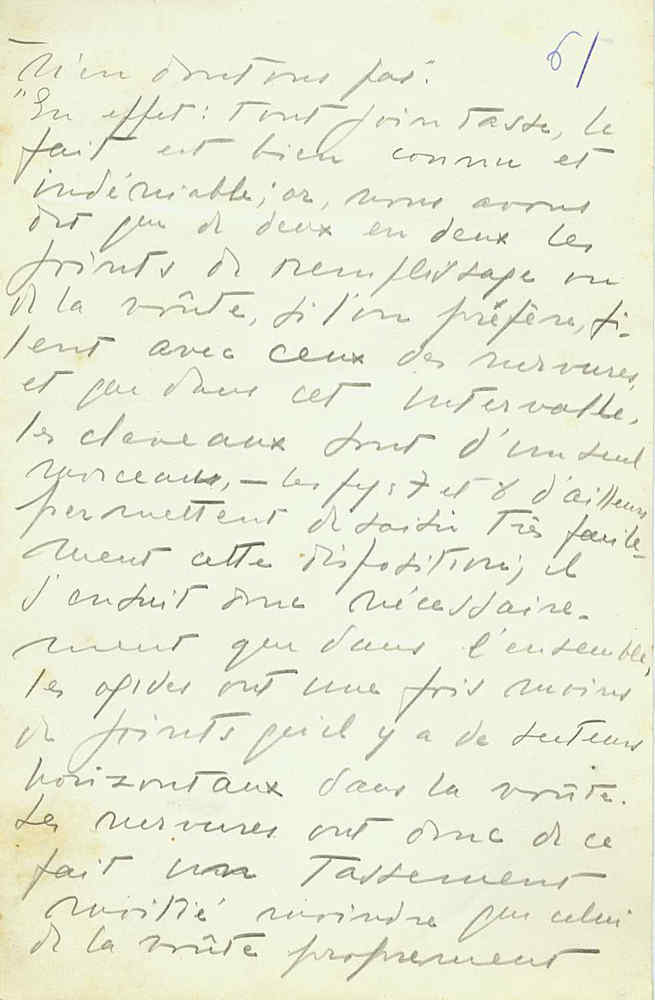 61
n'en doutons pas".
"En effet: tout joint tasse, le
fait est bien connu et
indéniable; or, nous avons
dit que de deux en deux les
joints de remplissage ou
de la voûte, si l'on préfère, fi-
lent avec ceux des nervures,
et que dans cet intervalle,
les claveaux sont d'un seul
morceau, — les fig. 7 et 8 d'ailleurs
permettent de saisir très facile-
ment cette disposition; il
s'ensuit donc nécessaire-
ment que dans l'ensemble,
les ogives ont une fois moins
de joints qu'il y a de
horizontaux dans la voûte.
Les nervures ont donc de ce
fait un tassement
moitié moindre que celui
de la voûte proprement